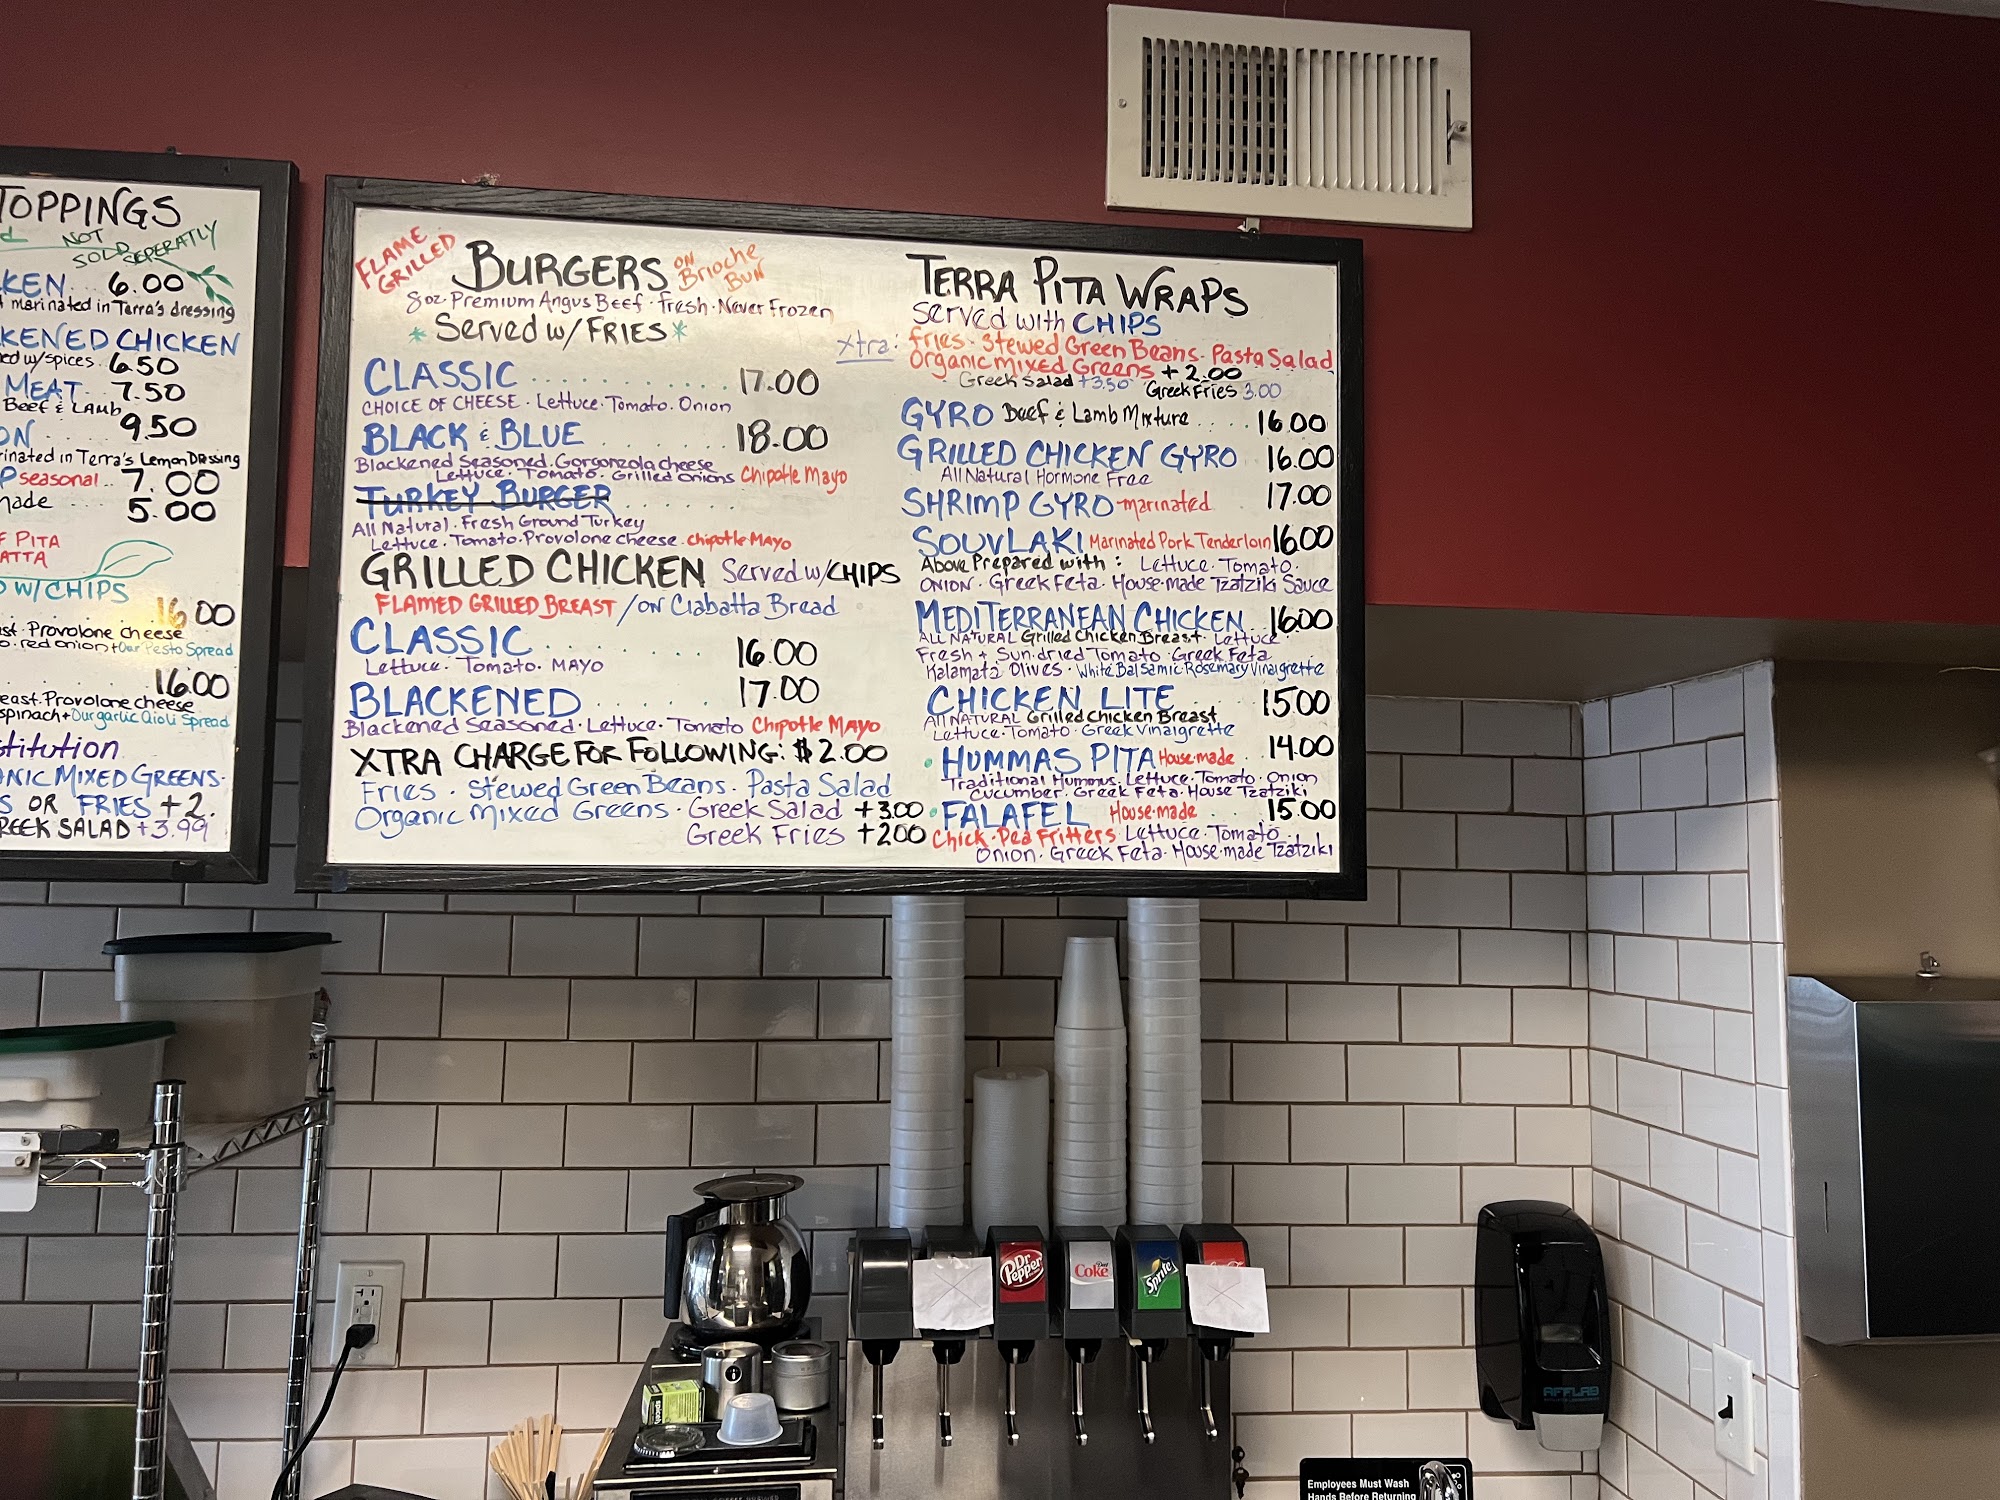 TOPPINGS
NOT
SOLD SEPERATLY
KEN 6.00
marinated in Terra's dressing
KENED CHICKEN
w/spices. 6.50
MEAT. 7.50
Beef & LAMB
ON 9.50
rinated in Terra's Lemon Dressing
P seasonal.. 7.00
made 5.00
F PITA
ATTA
W/CHIPS
16.00
st. Provolone cheese
o. red onion + Our Pesto Spread
16.00
east. Provolone cheese
spinach + Our garlic aioli Spread
stitution
NIC MIXED GREENS.
S OR FRIES +2.
REEK SALAD +3.99
FLAME GRILLED
BURGERS ON Brioche BUN
8oz. Premium Angus Beef. Fresh. Never Frozen
*Served w/ FRIES*
CLASSIC 17.00
CHOICE OF CHEESE. Lettuce. Tomato. Onion
BLACK & BLUE 18.00
Blackened Seasoned. Gorgonzola cheese
Lettuce. Tomato. Grilled Onions Chipotle Mayo
TURKEY BURGER
All Natural. Fresh Ground Turkey
Lettuce. Tomato. Provolone cheese. Chipotle MAYO
GRILLED CHICKEN Served w/CHIPS
FLAMED GRILLED BREAST /ON Ciabatta Bread
CLASSIC 16.00
Lettuce. Tomato. MAYO
BLACKENED 17.00
Blackened Seasoned. Lettuce. Tomato Chipotle MAYO
XTRA CHARGE FOR FOLLOWING: $2.00
Fries. Stewed Green Beans. Pasta Salad
Organic Mixed Greens. Greek Salad +3.00
Greek Fries +2.00
TERRA PITA WRAPS
Served with CHIPS
xtra: fries. Stewed Green Beans. Pasta Salad
Organic mixed Greens +2.00
Greek Salad +3.50 Greek Fries 3.00
GYRO Beef & Lamb Mixture 16.00
GRILLED CHICKEN GYRO 16.00
All Natural Hormone Free
SHRIMP GYRO -marinated 17.00
SOUVLAKI Marinated Pork Tenderloin 16.00
Above Prepared with: Lettuce. Tomato.
ONION. Greek Feta. House-made Tzatziki Sauce
MEDITERRANEAN CHICKEN 16.00
ALL NATURAL Grilled Chicken Breast. Lettuce.
Fresh + Sun.dried Tomato. Greek Feta
Kalamata Olives. White Balsamic Rosemary Vinaigrette
CHICKEN LITE 15.00
All NATURAL Grilled Chicken Breast
Lettuce. Tomato. Greek Vinaigrette
HUMMAS PITA House-made 14.00
Traditional Hummus. Lettuce. Tomato. Onion
Cucumber. Greek Feta. House Tzatziki
FALAFEL House-made 15.00
Chick-Pea Fritters. Lettuce. Tomato.
Onion. Greek Feta. House-made Tzatziki
Dr Pepper
Diet Coke
Sprite
AFFLAB
Employees Must Wash
Hands Before Returning